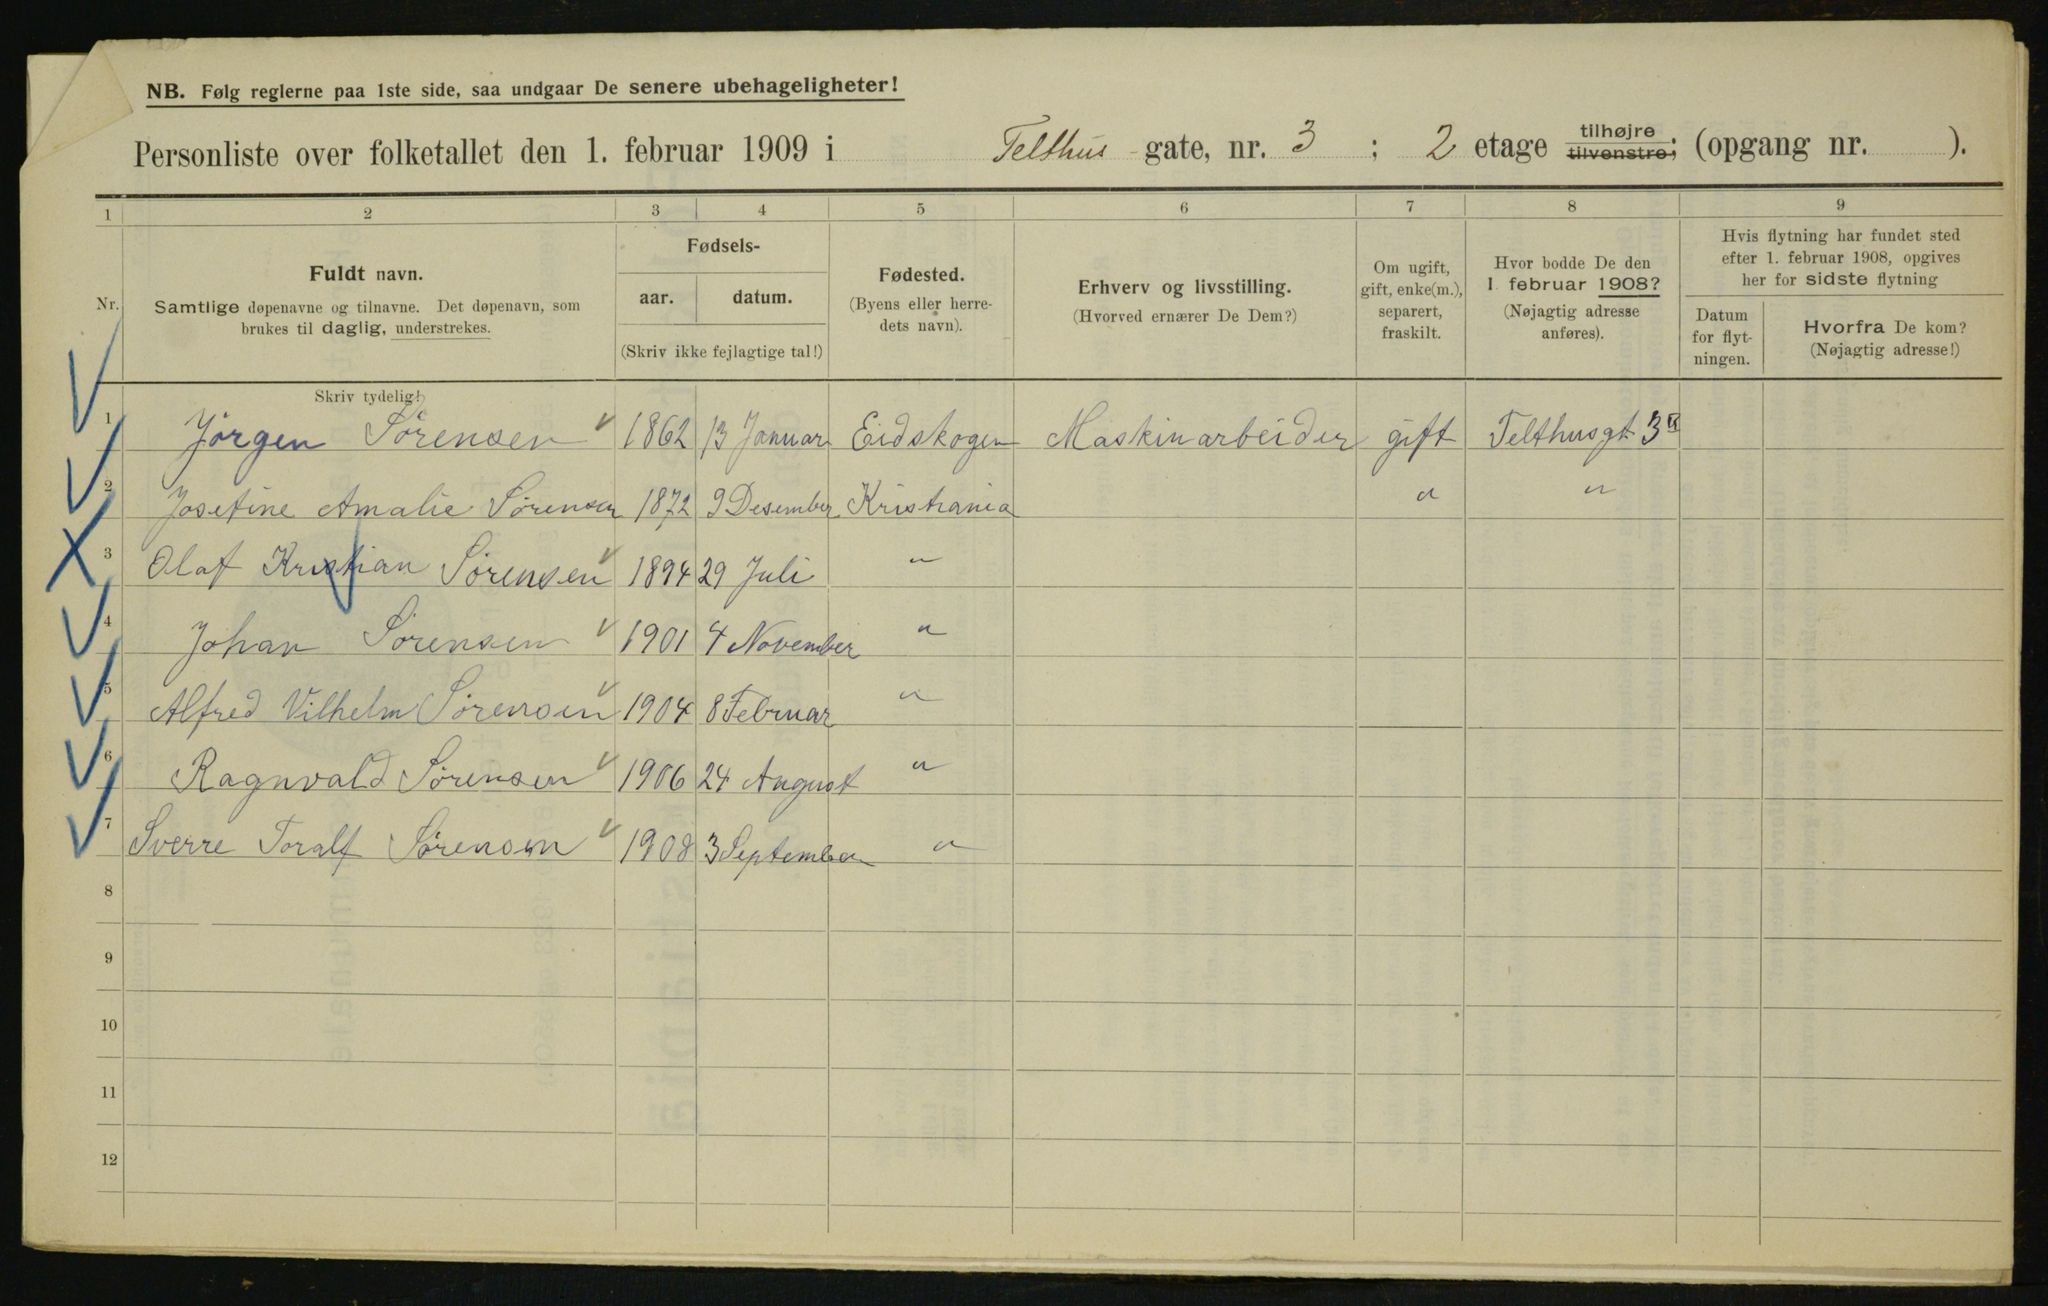 NB. Følg reglerne paa 1ste side, saa undgaar De senere ubehageligheter!
Personliste over folketallet den 1. februar 1909 i Telthus-gate, nr. 3 ; 2 etage tilhøjre tilvenstre; (opgang nr. ).
1 2 3 4 5 6 7 8 9
Nr.
Fuldt navn.
Samtlige døpenavne og tilnavne. Det døpenavn, som
brukes til daglig, understrekes.
Fødsels-
aar. datum.
(Skriv ikke fejlagtige tal!)
Fødested.
(Byens eller herre-
dets navn).
Erhverv og livsstilling.
(Hvorved ernærer De Dem?)
Om ugift,
gift, enke(m.),
separert,
fraskilt.
Hvor bodde De den
1 februar 1908?
(Nøjagtig adresse
anføres).
Hvis flytning har fundet sted
efter 1. februar 1908, opgives
her for sidste flytning
Datum
for flyt-
ningen.
Hvorfra De kom?
(Nøjagtig adresse!)
Skriv tydelig!
1 Jörgen Sörensen 1862 13 Januar Eidskogen Maskinarbeider gift Telthusgt 3 II
2 Josefine Amalie Sörensen 1872 9 Desember Kristiania " "
3 Olaf Kristian Sörensen 1894 29 Juli "
4 Johan Sörensen 1901 4 November "
5 Alfred Vilhelm Sörensen 1904 8 Februar "
6 Ragnvald Sörensen 1906 24 August "
7 Sverre Toralf Sörensen 1908 3 September "
8
9
10
11
12